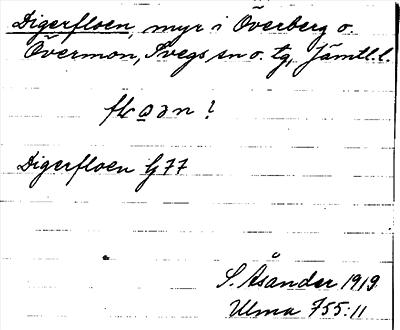 Digerfloen, myr i Överberg o.
Övermon, Svegs sn o. tg, Jämtl. l.
Digerfloen G 77
S. Åsander 1919
Ulma 755:11